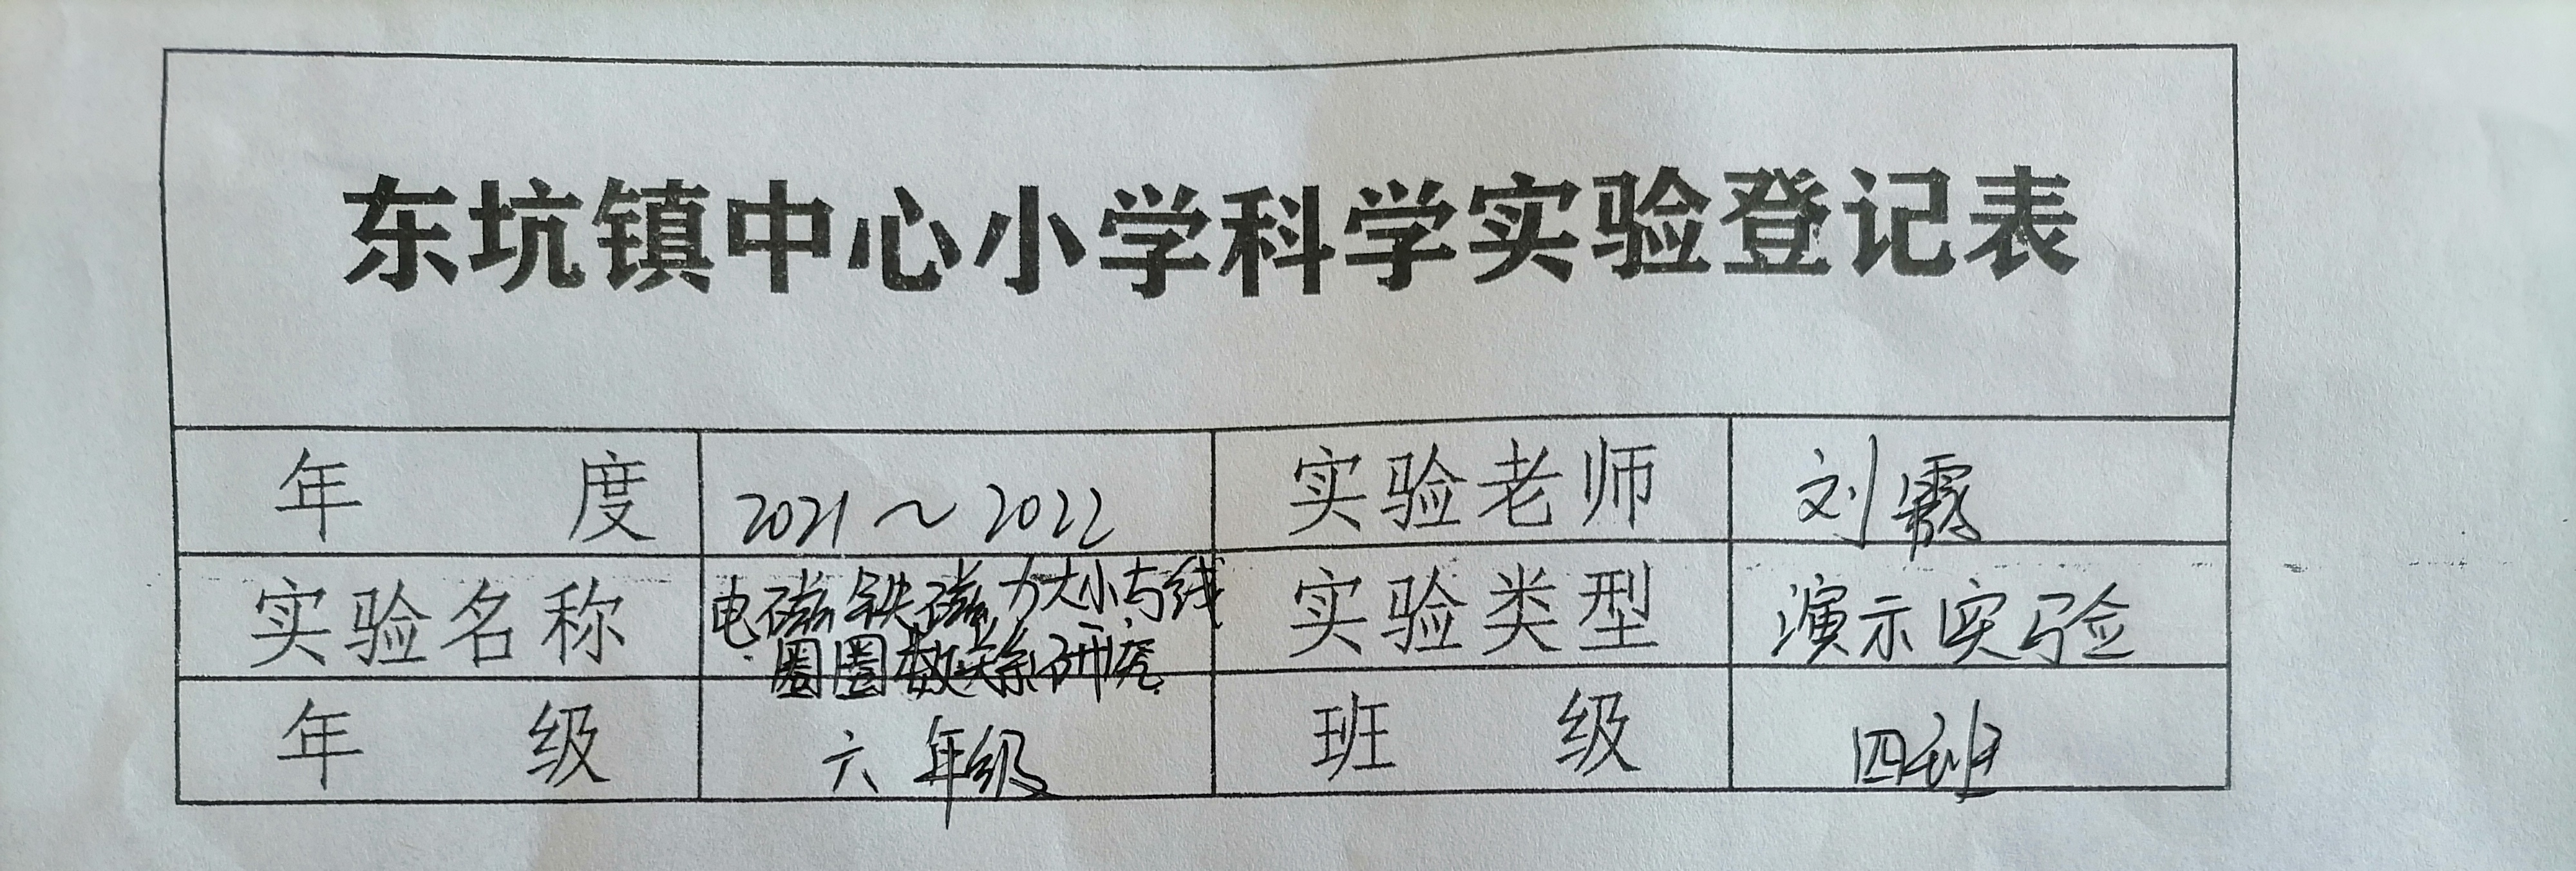 东坑镇中心小学科学实验登记表
年度 2021~2022 实验老师 刘霞
实验名称 电磁铁磁力大小与线 实验类型 演示实验
圈圈数关系研究
年级 六年级 班级 四班